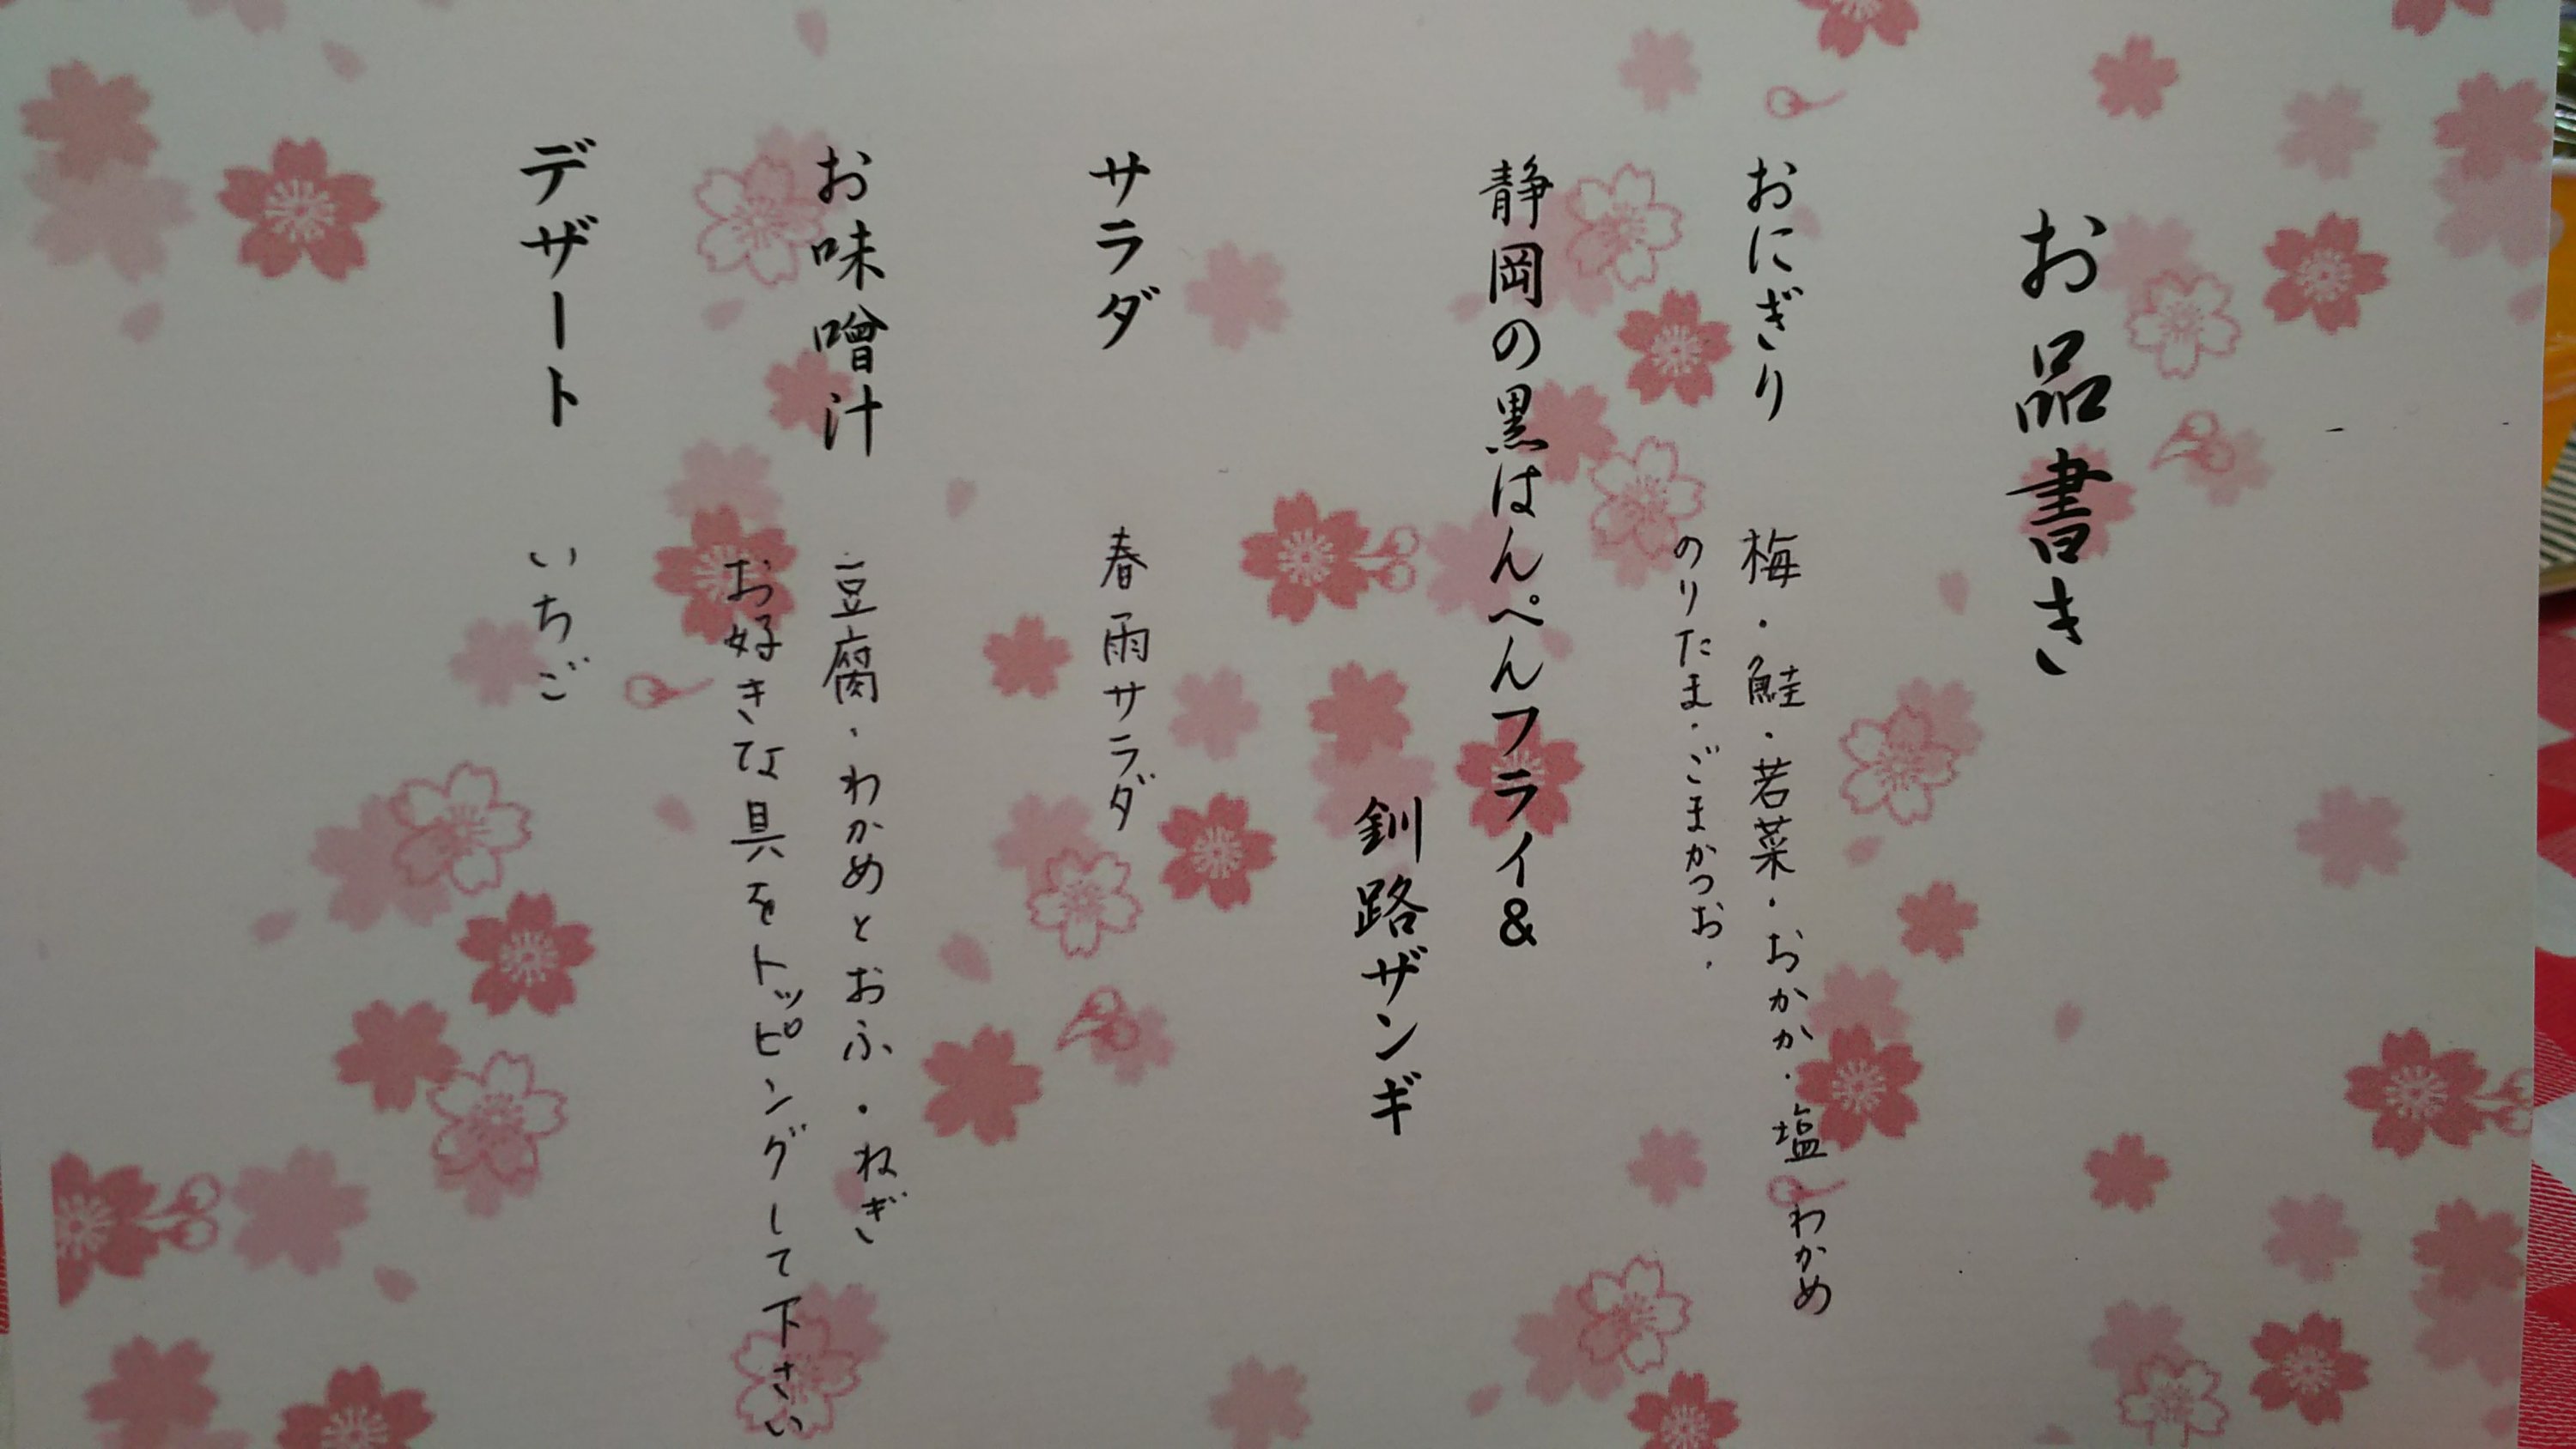 お品書き
おにぎり 梅・鮭・若菜・おかか・塩わかめ
のりたま・ごまかつお・
静岡の黒はんぺんフライ&
釧路ザンギ
サラダ 春雨サラダ
お味噌汁 豆腐・わかめとおふ・ねぎ
お好きな具をトッピングして下さい
デザート いちご